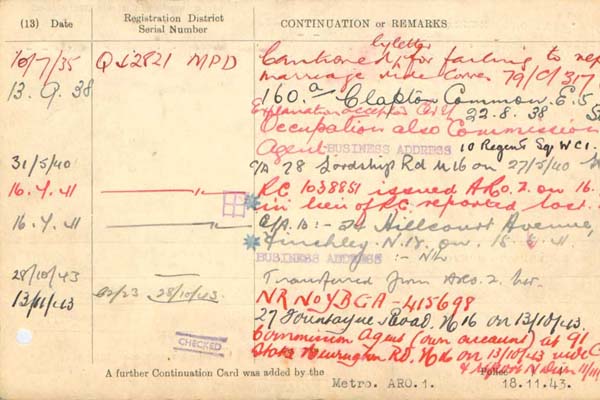 (13) Date Registration District Serial Number CONTINUATION OR REMARKS
by letter
10/7/35 QJ2821 MPD Cautioned, for failing to
marriage vide Corres 79/C/317
13. 9. 38 160.a Clapton Common E.5
Explanation accepted 22.8.38
Occupation also Commission
Agent BUSINESS ADDRESS 10 Regents Sq. WC1.
31/5/40 C/A 28 Lordship Rd N16 on 27/5/40
16.4.41 " R.C. 1038851 issued ARO.2. on 16.
in lieu of R.C. reported lost.
16.4.41 " C/A to :- 34 Hillcourt Avenue,
Finchley. N.12. on 15 41.
BUSINESS ADDRESS :- Nil
28/10/43 Transferred from ARO.2.
13/11/43 28/10/43. NR No YBGA-415698
27 Fountayne Road. N16 on 13/10/43.
Commission Agent (own account) at 91
CHECKED
Stoke Newington RD. N16 on 13/10/43 vide
A further Continuation Card was added by the Police
Metro. ARO.1. 18.11.43.